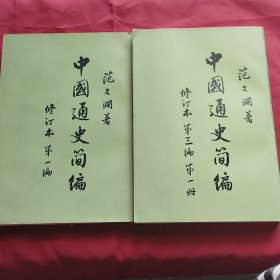 范文澜著
中國通史简编
修订本 第一编
范文澜著
中國通史简编
修订本 第三编 第一册